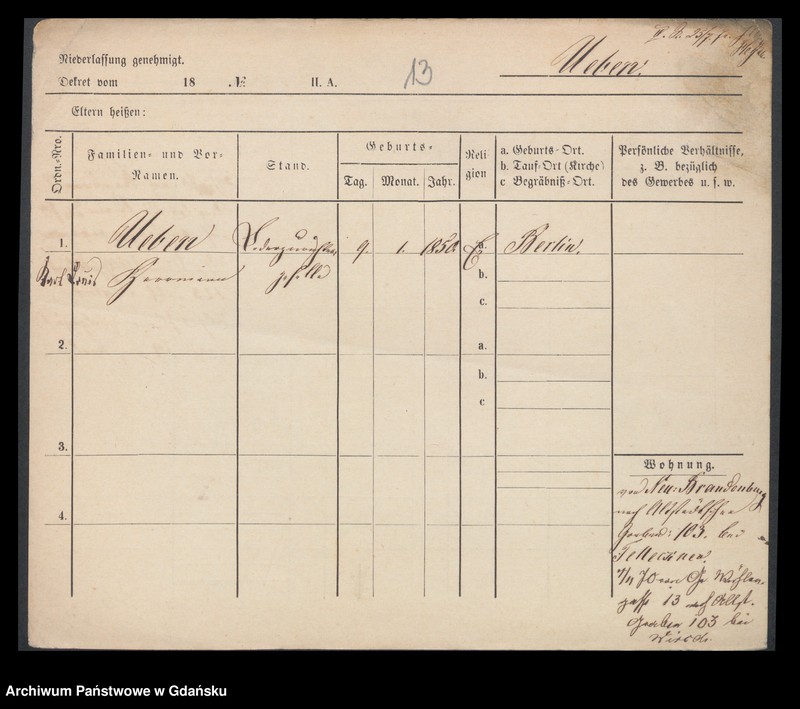 Niederlassung genehmigt.
Dekret vom 18 № II. A.
13
Ueben.
Eltern heißen:
Ordn.-Nro.
Familien- und Vor-
Namen.
Stand.
Geburts-
Tag. Monat. Jahr.
Reli
gion
a. Geburts-Ort.
b. Tauf-Ort (Kirche)
c Begräbniß-Ort.
Persönliche Verhältnisse,
z. B. bezüglich
des Gewerbes u. s. w.
1. Ueben 9. 1. 1850 a. Berlin.
Karl Louis Herrmann
b.
c.
2. a.
b.
c
3.
4.
Wohnung.
von Neu-Brandenburg
nach Altstädtschen
Graben 103. bei
13 nach Altst.
Graben 103 bei
Archiwum Państwowe w Gdańsku